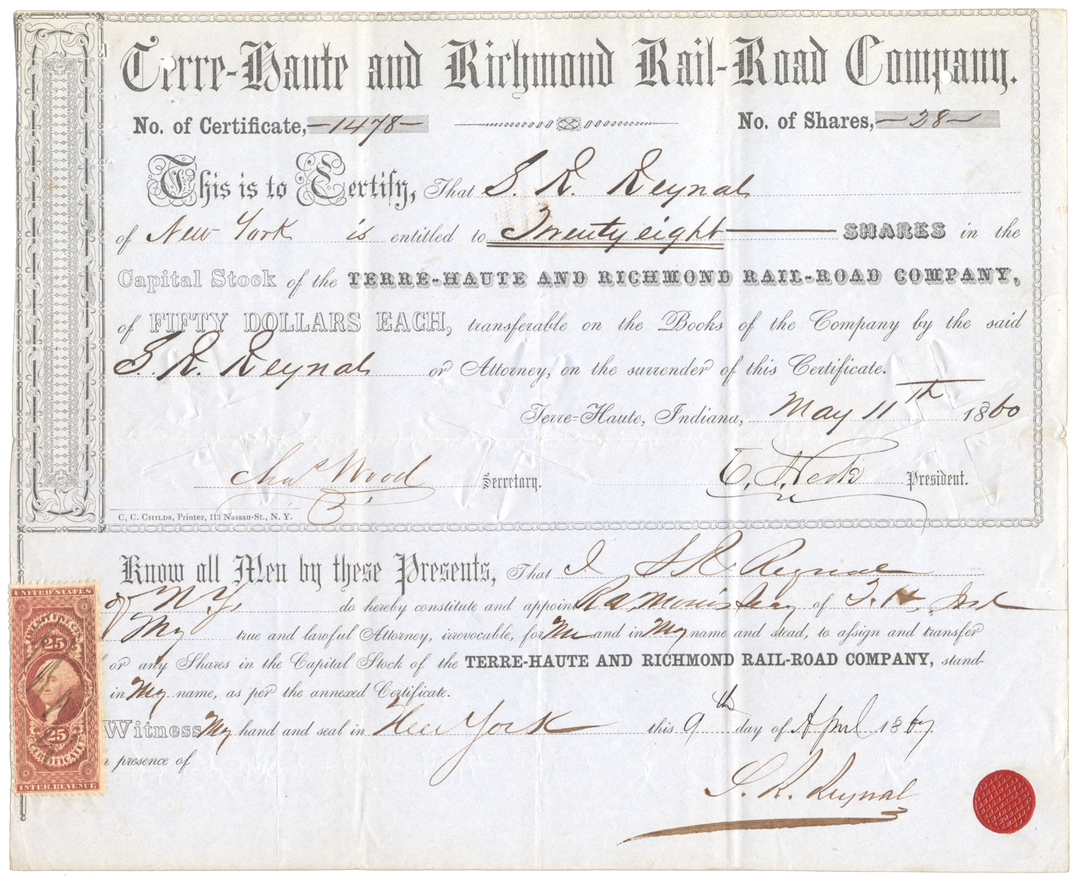 Terre-Haute and Richmond Rail-Road Company.
No. of Certificate, -1478- No. of Shares, -28-
This is to Certify, That S. R. Reynal
of New York is entitled to Twenty eight SHARES in the
Capital Stock of the TERRE-HAUTE AND RICHMOND RAIL-ROAD COMPANY,
of FIFTY DOLLARS EACH, transferable on the Books of the Company by the said
S. R. Reynal or Attorney, on the surrender of this Certificate.
Terre-Haute, Indiana, May 11th 1860
Chas Wood Secretary. President.
C. C. CHILDS, Printer, 113 Nassau-St., N. Y.
Know all Men by these Presents, That I S R Reynal
of N. Y. do hereby constitute and appoint of T. H. Ind
My true and lawful Attorney, irrevocable, for Me and in My name and stead, to assign and transfer
or any Shares in the Capital Stock of the TERRE-HAUTE AND RICHMOND RAIL-ROAD COMPANY, stand-
in My name, as per the annexed Certificate.
Witness My hand and seal in New York this 9th day of April 1867
presence of
S. R. Reynal
UNITED STATES
25
25
CERTIFICATE
INTER. REVENUE